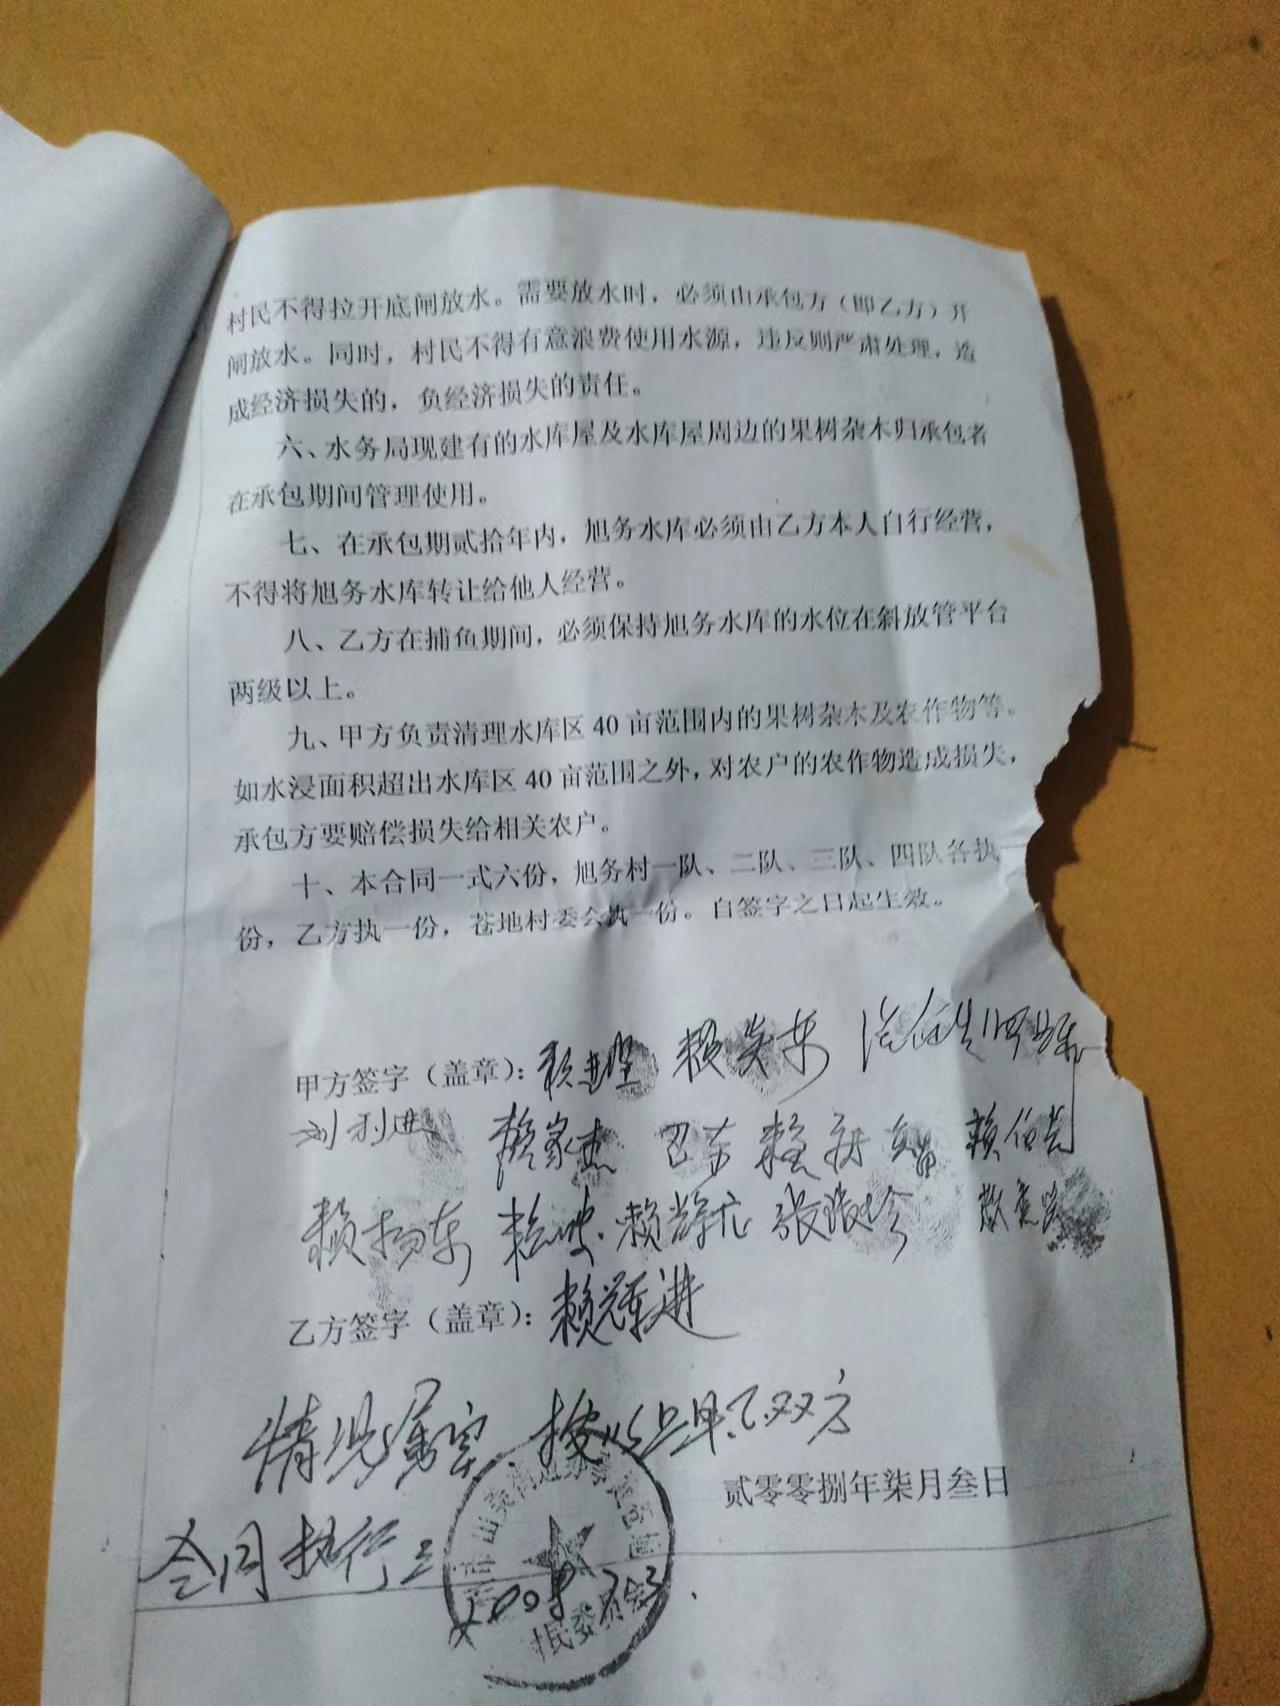 村民不得拉开底闸放水。需要放水时，必须由承包方（即乙方）开
闸放水。同时，村民不得有意浪费使用水源，违反则严肃处理，造
成经济损失的，负经济损失的责任。
六、水务局现建有的水库屋及水库屋周边的果树杂木归承包者
在承包期间管理使用。
七、在承包期贰拾年内，旭务水库必须由乙方本人自行经营，
不得将旭务水库转让给他人经营。
八、乙方在捕鱼期间，必须保持旭务水库的水位在斜放管平台
两级以上。
九、甲方负责清理水库区40亩范围内的果树杂木及农作物等。
如水浸面积超出水库区40亩范围之外，对农户的农作物造成损失，
承包方要赔偿损失给相关农户。
十、本合同一式六份，旭务村一队、二队、三队、四队各执一
份，乙方执一份，苍地村委会执一份。自签字之日起生效。
甲方签字（盖章）：
刘利进 赖家杰
赖杨东 赖辉尤
乙方签字（盖章）：赖冠进
情况属实，按以上甲乙双方
贰零零捌年柒月叁日
合同执行
2008.7.3.
村民委员会